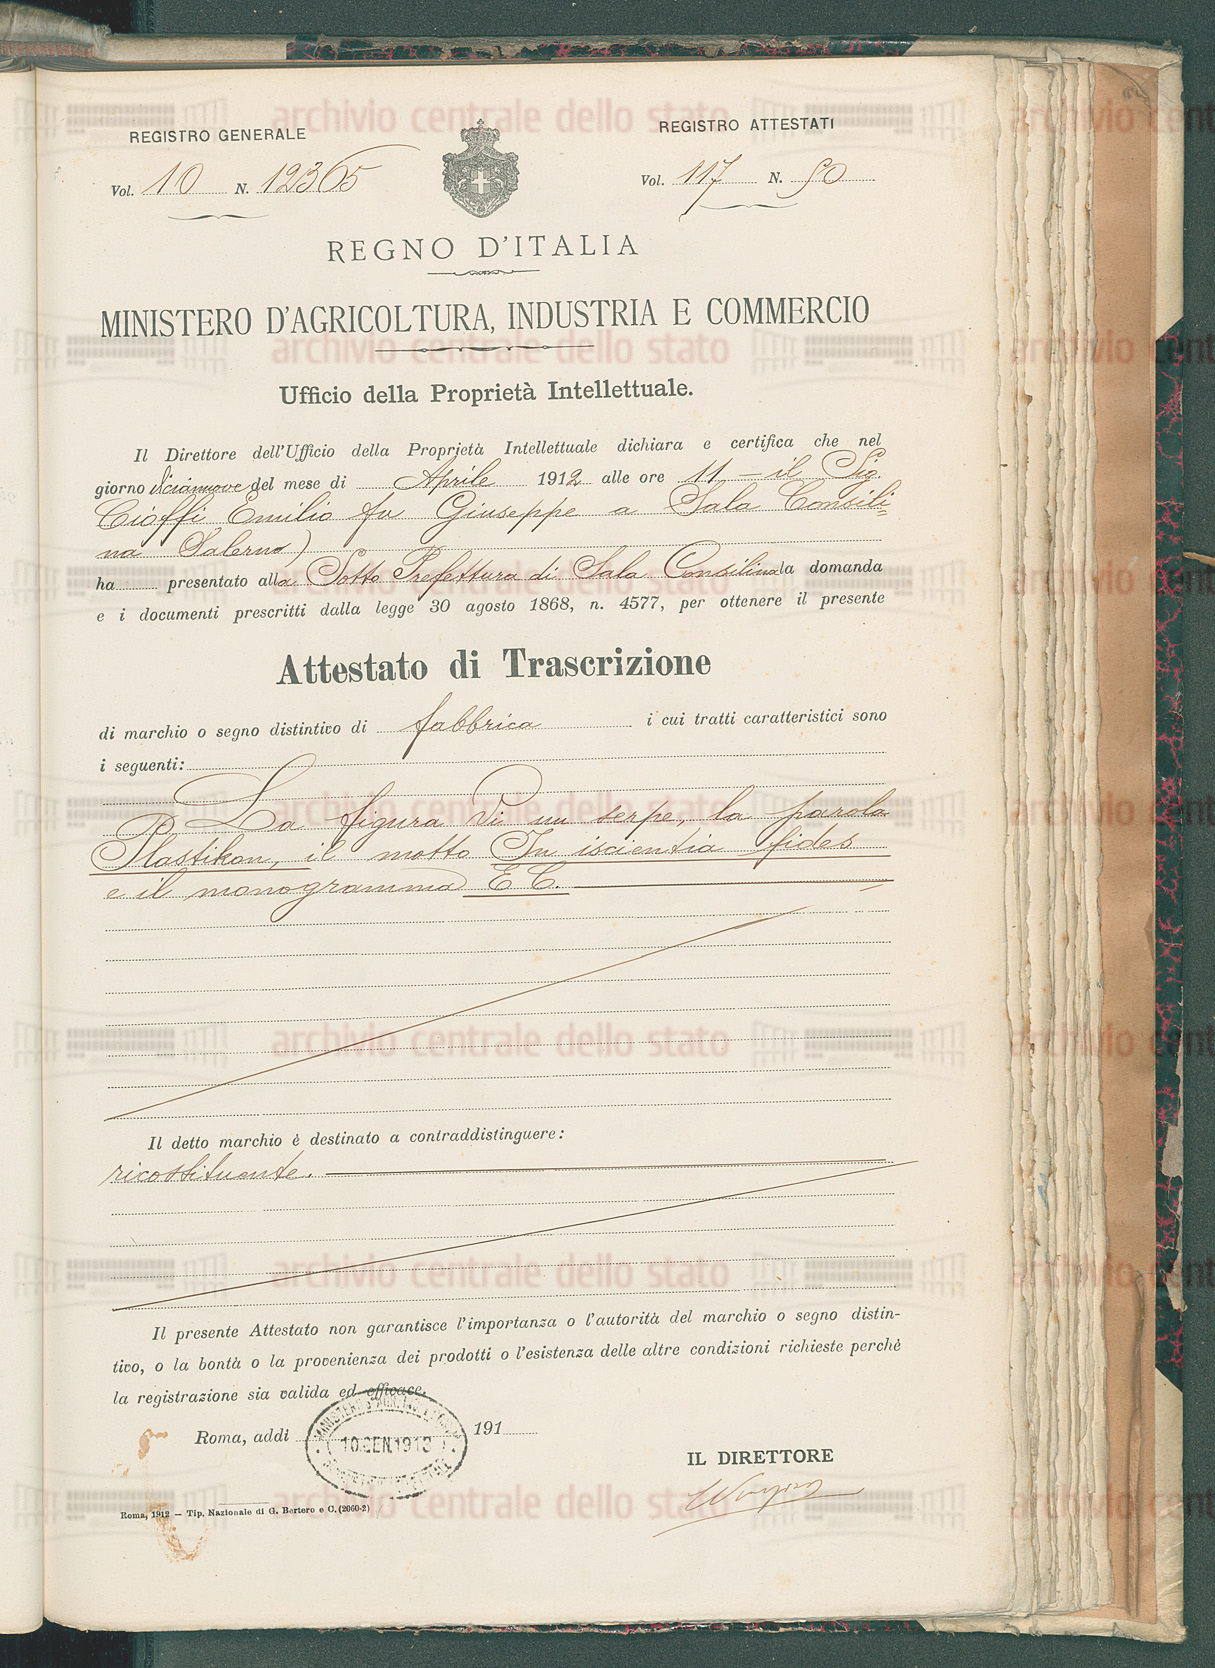 REGISTRO GENERALE
Vol. 10 N. 12365
REGISTRO ATTESTATI
Vol. 117 N. 50
REGNO D'ITALIA
MINISTERO D'AGRICOLTURA, INDUSTRIA E COMMERCIO
Ufficio della Proprietà Intellettuale.
Il Direttore dell'Ufficio della Proprietà Intellettuale dichiara e certifica che nel
giorno diciannove del mese di Aprile 1912 alle ore 11 — il Sig.
Cioffi Emilio fu Giuseppe a Sala Consili=
na Salerno)
ha presentato alla Sotto Prefettura di Sala Consilina la domanda
e i documenti prescritti dalla legge 30 agosto 1868, n. 4577, per ottenere il presente
Attestato di Trascrizione
di marchio o segno distintivo di fabbrica i cui tratti caratteristici sono
i seguenti:
La figura di un serpe, la parola
Plastikon, il motto In iscientia fides
e il monogramma E C.
Il detto marchio è destinato a contraddistinguere:
ricostituente.
Il presente Attestato non garantisce l'importanza o l'autorità del marchio o segno distin-
tivo, o la bontà o la provenienza dei prodotti o l'esistenza delle altre condizioni richieste perchè
la registrazione sia valida ed efficace.
Roma, addì 10 GEN 1913 191
IL DIRETTORE
Roma, 1912 — Tip. Nazionale di G. Bertero e C. (2060-2)
archivio centrale dello stato